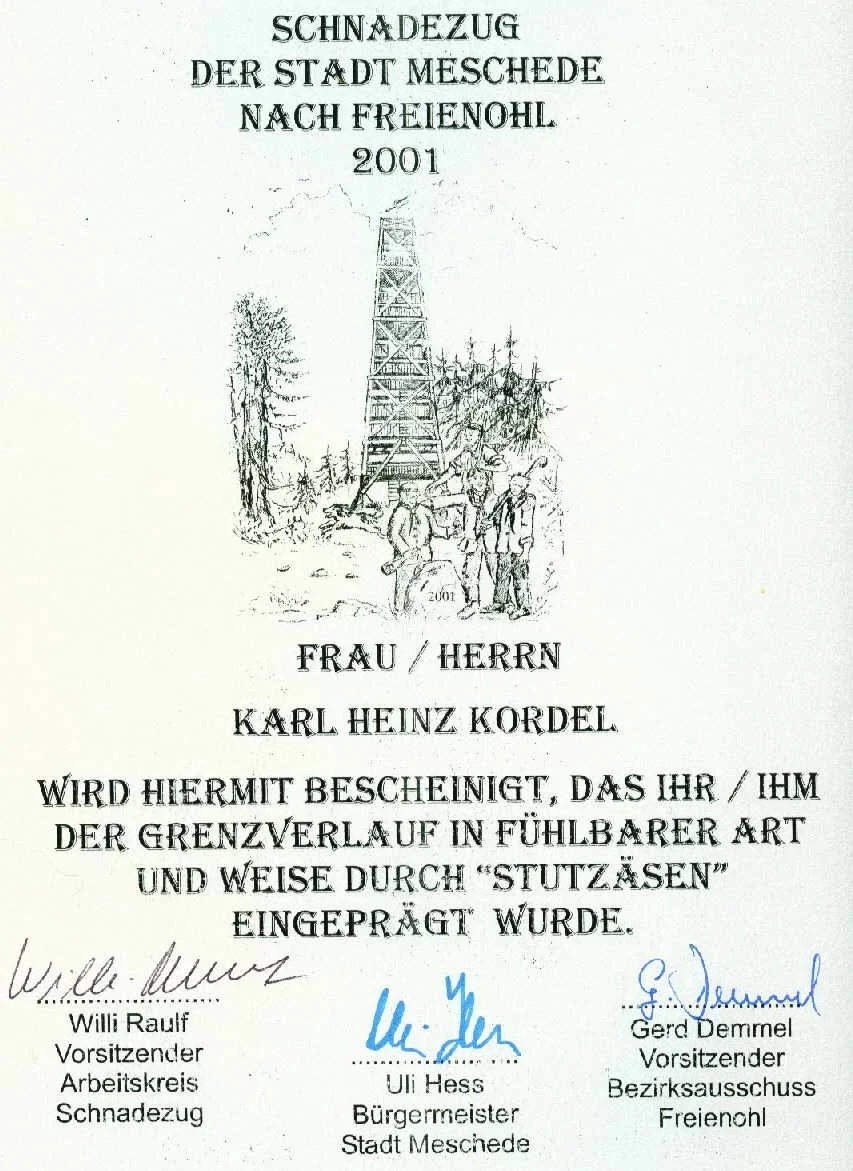 SCHNADEZUG
DER STADT MESCHEDE
NACH FREIENOHL
2001
2001
FRAU / HERRN
KARL HEINZ KORDEL
WIRD HIERMIT BESCHEINIGT, DAS IHR / IHM
DER GRENZVERLAUF IN FÜHLBARER ART
UND WEISE DURCH “STUTZÄSEN”
EINGEPRÄGT WURDE.
Willi Raulf
Vorsitzender
Arbeitskreis
Schnadezug
Uli Hess
Uli Hess
Bürgermeister
Stadt Meschede
G. Demmel
Gerd Demmel
Vorsitzender
Bezirksausschuss
Freienohl